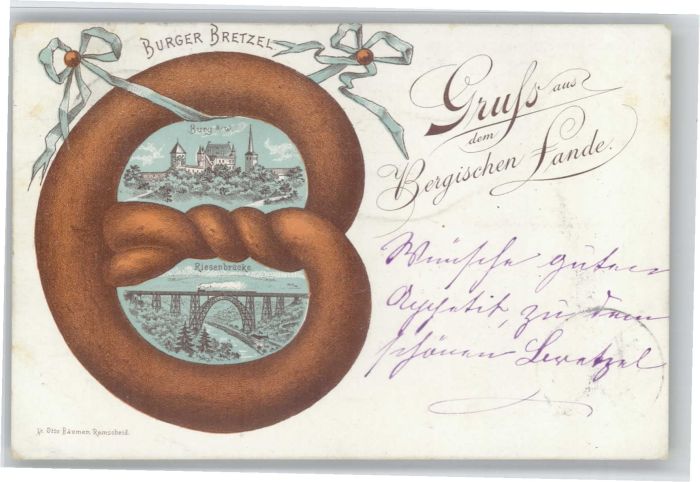 BURGER BRETZEL
Gruß aus
dem
Bergischen Lande.
Burg a/W.
Riesenbrücke
Wünsche guten
Appetit, zu dem
schönen Bretzel
Lr. Otto Bäumen, Remscheid.